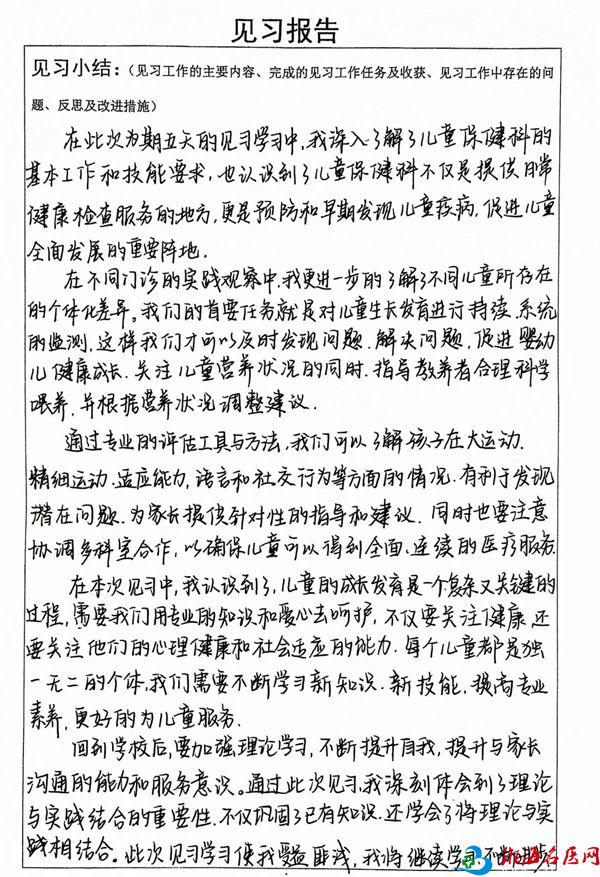 见习报告
见习小结：（见习工作的主要内容、完成的见习工作任务及收获、见习工作中存在的问
题、反思及改进措施）
在此次为期五天的见习学习中，我深入了解了儿童保健科的
基本工作和技能要求，也认识到了儿童保健科不仅是提供日常
健康检查服务的地方，更是预防和早期发现儿童疾病，促进儿童
全面发展的重要阵地.
在不同门诊的实践观察中，我更进一步的了解了不同儿童所存在
的个体化差异。我们的首要任务就是对儿童生长发育进行持续.系统
的监测，这样我们才可以及时发现问题.解决问题，促进婴幼
儿健康成长.关注儿童营养状况的同时.指导教养者合理科学
喂养，并根据营养状况调整建议.
通过专业的评估工具与方法，我们可以了解孩子在大运动.
精细运动.适应能力，语言和社交行为等方面的情况.有利于发现
潜在问题.为家长提供针对性的指导和建议.同时也要注意
协调多科室合作，以确保儿童可以得到全面.连续的医疗服务.
在本次见习中，我认识到了，儿童的成长发育是一个复杂又关键的
过程，需要我们用专业的知识和爱心去呵护，不仅要关注健康.还
要关注他们的心理健康和社会适应的能力.每个儿童都是独
一无二的个体，我们需要不断学习新知识.新技能，提高专业
素养，更好的为儿童服务.
回到学校后，要加强理论学习，不断提升自我，提升与家长
沟通的能力和服务意识。通过此次见习，我深刻体会到了理论
与实践结合的重要性.不仅巩固了已有知识.还学会了将理论与实
践相结合。此次见习学习使我受益匪浅，我将继续学习不断进步